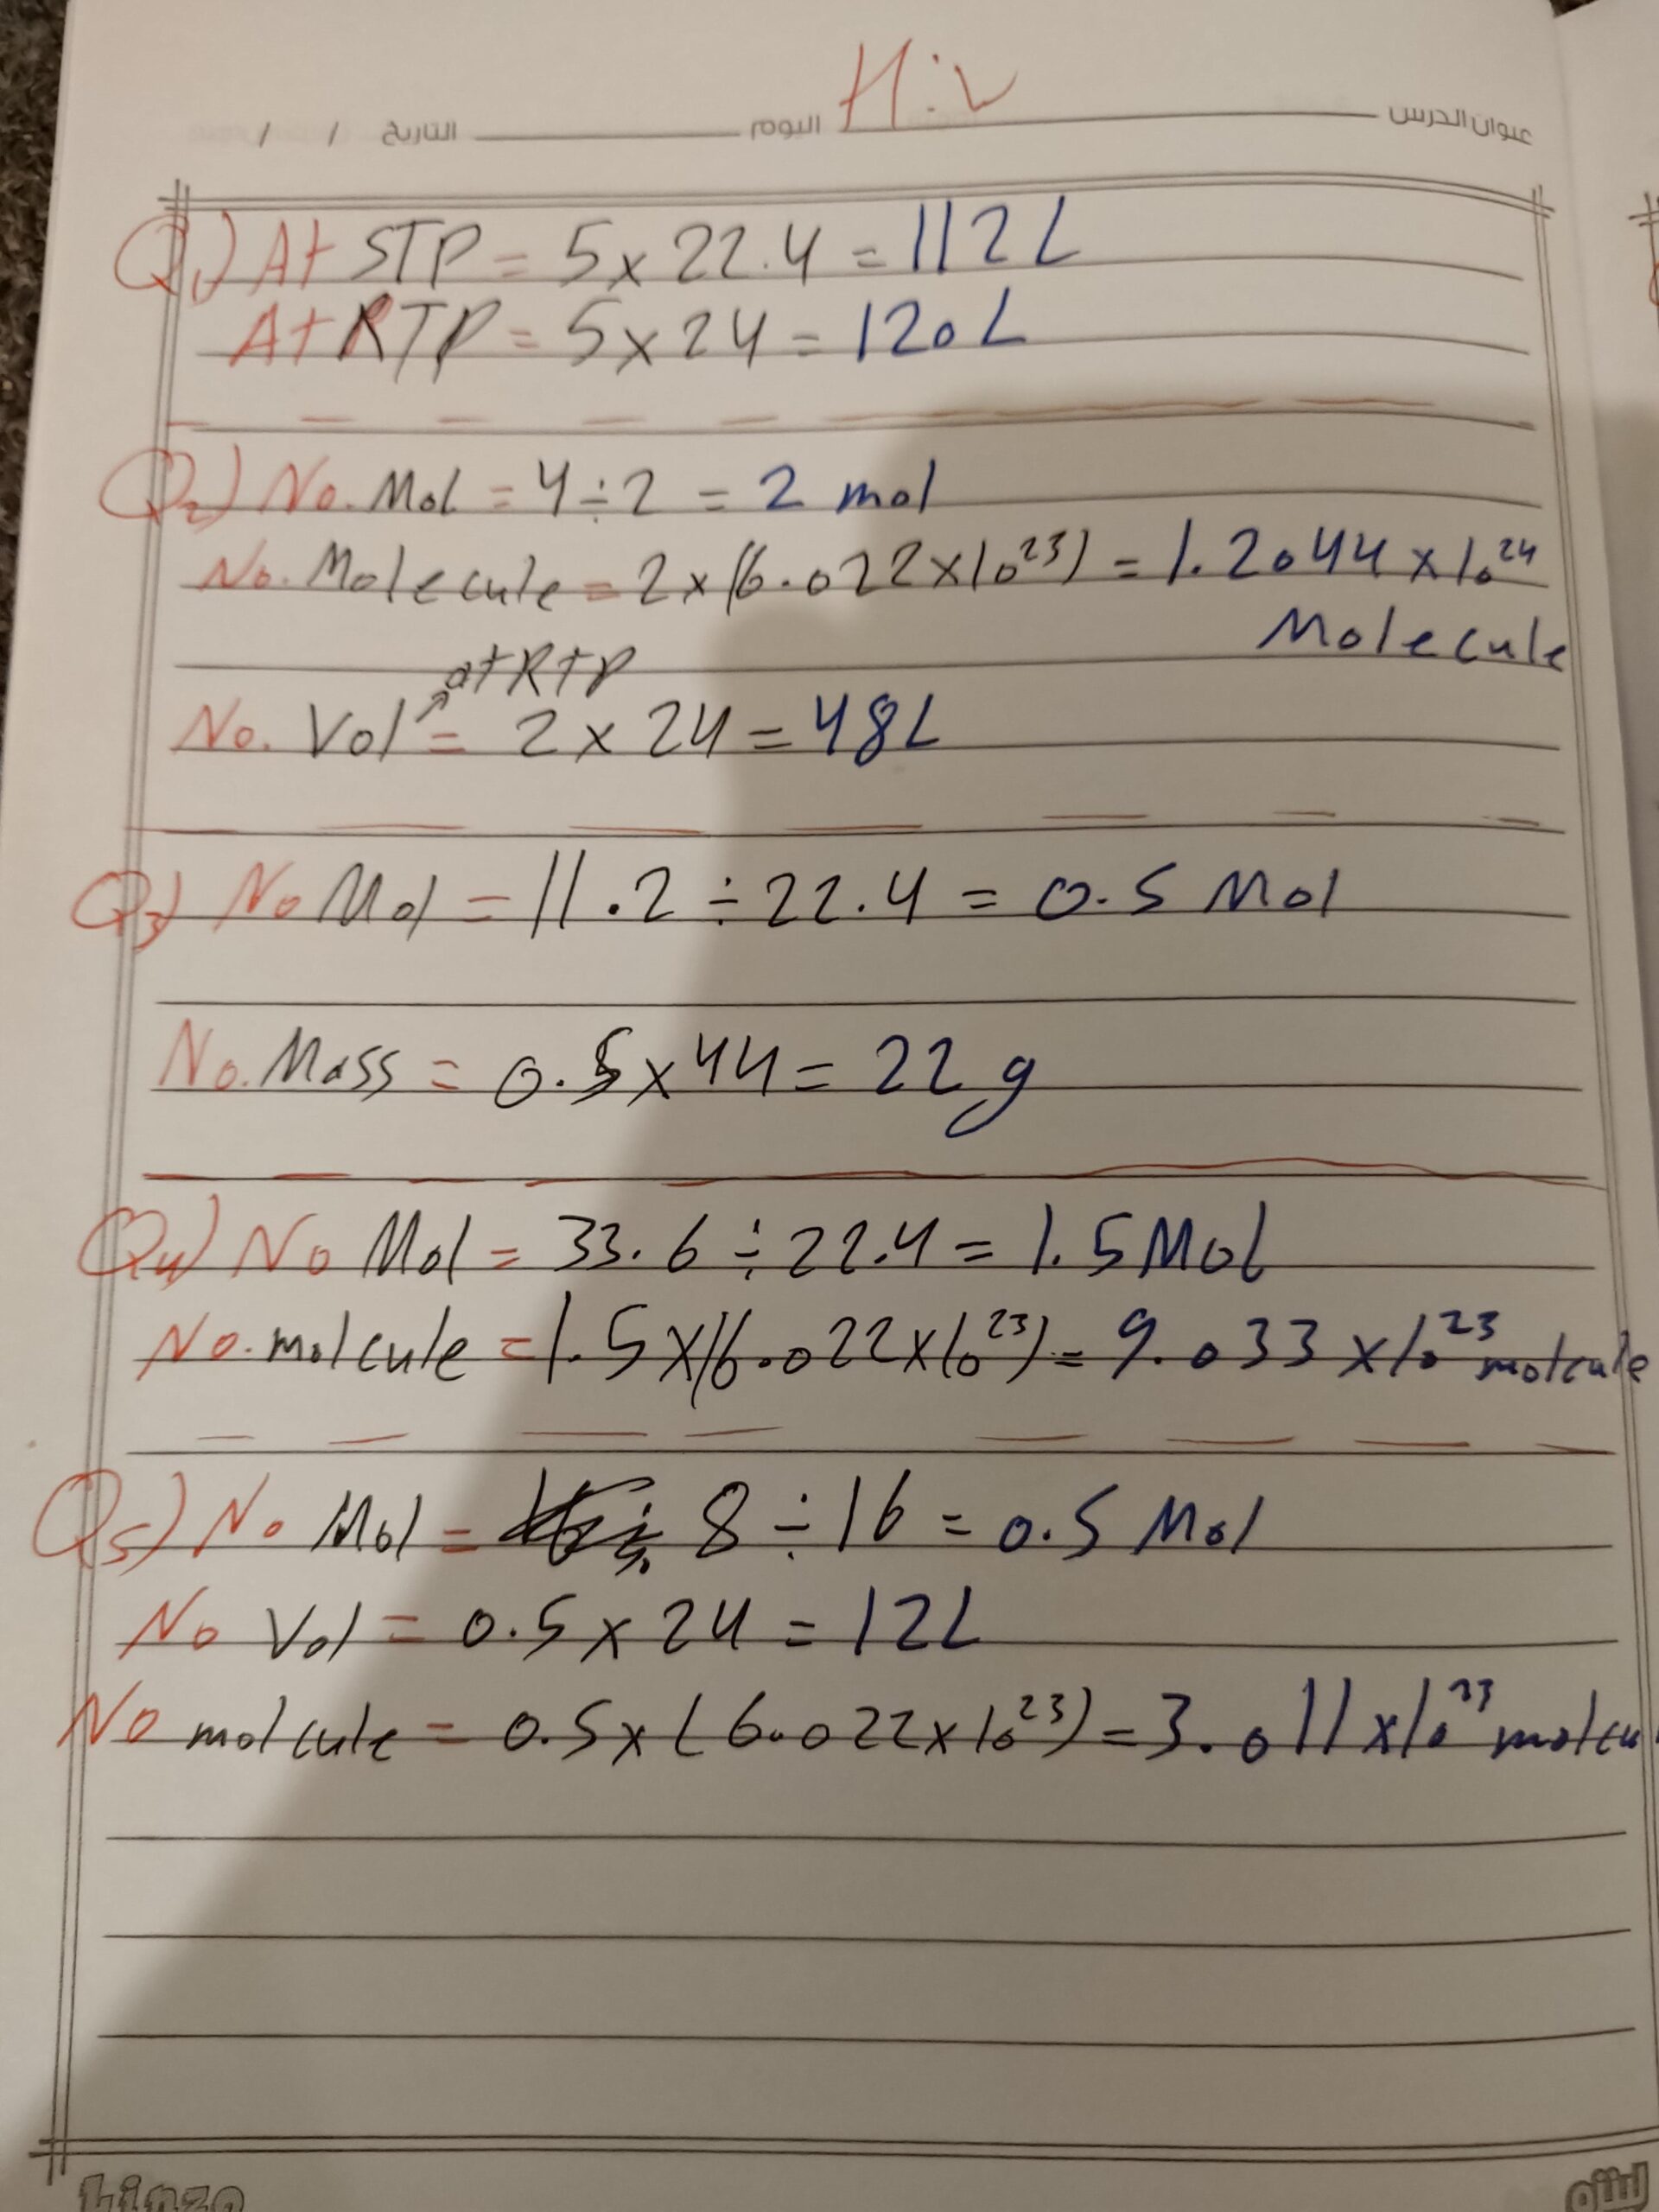 H.W
عنوان الدرس اليوم التاريخ / /
Q1) At STP = 5 x 22.4 = 112 L
At RTP = 5 x 24 = 120 L
Q2) No. Mol = 4 ÷ 2 = 2 mol
No. Molecule = 2 x (6.022 x 10²³) = 1.2044 x 10²⁴
Molecule
at RTP
No. Vol ↗ = 2 x 24 = 48L
Q3) No Mol = 11.2 ÷ 22.4 = 0.5 Mol
No. Mass = 0.5 x 44 = 22 g
Q4) No Mol = 33.6 ÷ 22.4 = 1.5 Mol
No. molcule = 1.5 x (6.022 x 10²³) = 9.033 x 10²³ molcule
Q5) No Mol = 8 ÷ 16 = 0.5 Mol
No Vol = 0.5 x 24 = 12L
No molcule = 0.5 x (6.022 x 10²³) = 3.011 x 10²³ molcu
Linzo